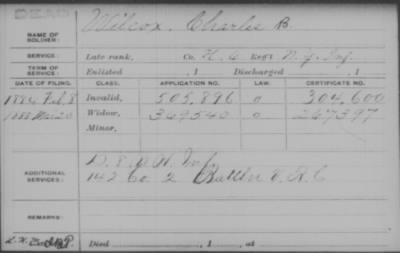 DEAD
NAME OF SOLDIER: Wilcox, Charles B.
SERVICE: Late rank, Co. Reg't N.Y. Inf.
TERM OF SERVICE: Enlisted , 1 Discharged , 1
DATE OF FILING. CLASS. APPLICATION NO. LAW. CERTIFICATE NO.
1884 Feb. 8 Invalid, 505,896 304,600
1888 Widow, 369540 267397
Minor,
ADDITIONAL SERVICES:
142 Co. 2 V.R.C
REMARKS:
Died , 1 , at